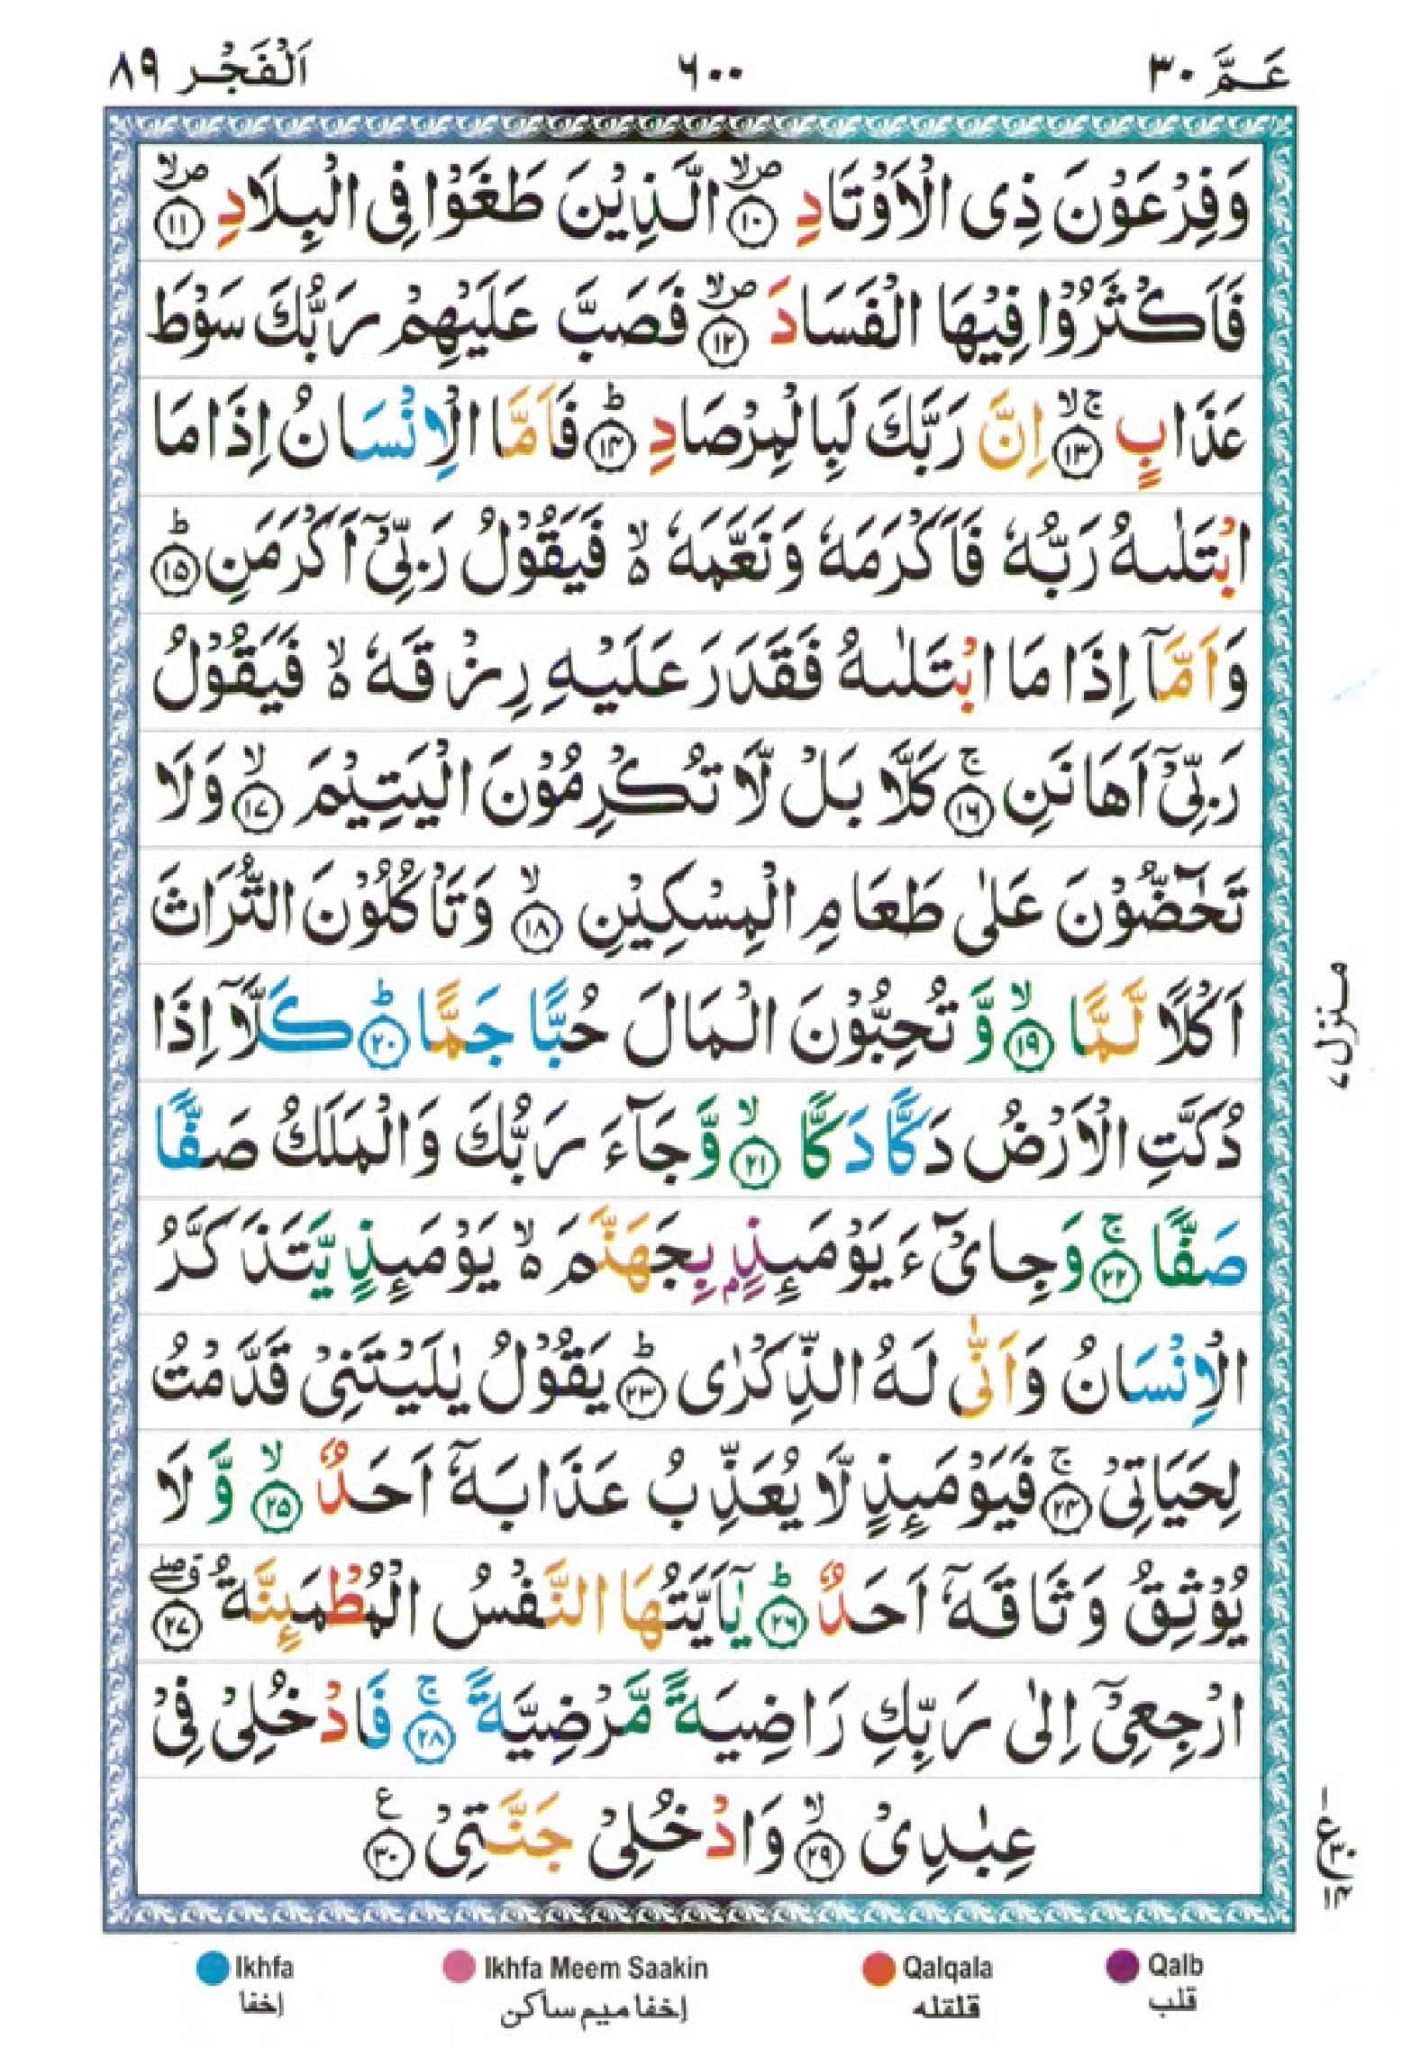 عَمَّ ۳۰
٦٠٠
اَلْفَجْر ۸۹
وَفِرْعَوْنَ ذِی الْاَوْتَادِ ۪ۙ۝۱۰ الَّذِیْنَ طَغَوْا فِی الْبِلَادِ ۪ۙ۝۱۱
فَاَكْثَرُوْا فِیْهَا الْفَسَادَ ۪ۙ۝۱۲ فَصَبَّ عَلَیْهِمْ رَبُّكَ سَوْطَ
عَذَابٍ ۚۙ۝۱۳ اِنَّ رَبَّكَ لَبِالْمِرْصَادِ ؕ۝۱۴ فَاَمَّا الْاِنْسَانُ اِذَا مَا
ابْتَلٰىهُ رَبُّهٗ فَاَكْرَمَهٗ وَنَعَّمَهٗ ۙ۬ فَیَقُوْلُ رَبِّیْۤ اَكْرَمَنِ ؕ۝۱۵
وَاَمَّاۤ اِذَا مَا ابْتَلٰىهُ فَقَدَرَ عَلَیْهِ رِزْقَهٗ ۙ۬ فَیَقُوْلُ
رَبِّیْۤ اَهَانَنِ ۚ۝۱۶ كَلَّا بَلْ لَّا تُكْرِمُوْنَ الْیَتِیْمَ ۙ۝۱۷ وَلَا
تَحٰٓضُّوْنَ عَلٰی طَعَامِ الْمِسْكِیْنِ ۙ۝۱۸ وَتَاْكُلُوْنَ التُّرَاثَ
اَكْلًا لَّمًّا ۙ۝۱۹ وَّ تُحِبُّوْنَ الْمَالَ حُبًّا جَمًّا ؕ۝۲۰ كَلَّاۤ اِذَا
دُكَّتِ الْاَرْضُ دَكًّا دَكًّا ۙ۝۲۱ وَّجَآءَ رَبُّكَ وَالْمَلَكُ صَفًّا
صَفًّا ۚ۝۲۲ وَجِایْٓءَ یَوْمَىِٕذٍۭ بِجَهَنَّمَ ۙ۬ یَوْمَىِٕذٍ یَّتَذَكَّرُ
الْاِنْسَانُ وَاَنّٰی لَهُ الذِّكْرٰی ؕ۝۲۳ یَقُوْلُ یٰلَیْتَنِیْ قَدَّمْتُ
لِحَیَاتِیْ ۚ۝۲۴ فَیَوْمَىِٕذٍ لَّا یُعَذِّبُ عَذَابَهٗۤ اَحَدٌ ۙ۝۲۵ وَّ لَا
یُوْثِقُ وَثَاقَهٗۤ اَحَدٌ ؕ۝۲۶ یٰۤاَیَّتُهَا النَّفْسُ الْمُطْمَىِٕنَّةُ ۗۖ۝۲۷
ارْجِعِیْۤ اِلٰی رَبِّكِ رَاضِیَةً مَّرْضِیَّةً ۚ۝۲۸ فَادْخُلِیْ فِیْ
عِبٰدِیْ ۙ۝۲۹ وَادْخُلِیْ جَنَّتِیْ ۠۝۳۰
منزل ۷
۱ ع ۳۰ ۱۴
Ikhfa
إخفا
Ikhfa Meem Saakin
إخفا میم ساکن
Qalqala
قلقله
Qalb
قلب